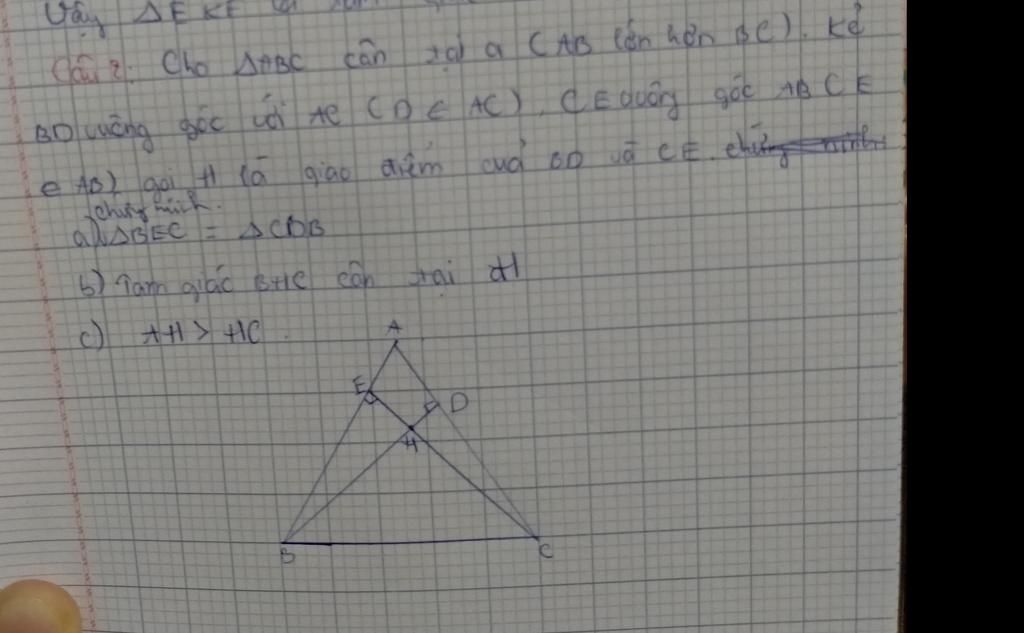 Vậy ΔEKF
Câu 2: Cho ΔABC cân tại a (AB lớn hơn BC). Kẻ
BD vuông góc với AC (D ∈ AC). CE vuông góc AB CE
∈ AB) gọi H là giao điểm của BD và CE.
chứng minh.
a) ΔBEC = ΔCDB
b) Tam giác BHC cân tại H
c) AH > HC.
A
E
D
H
B
C